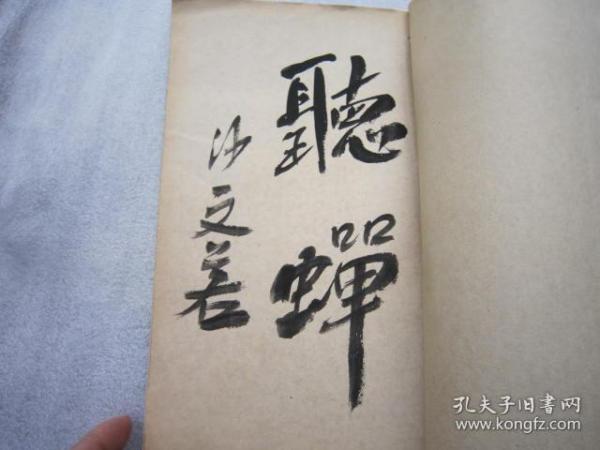 聽蟬
沙文若
孔夫子旧书网
www.kongfz.com